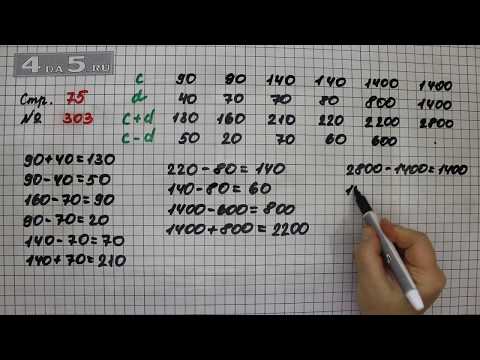 4 DA 5.RU
Стр. 75
№ 303
c 90 90 140 140 1400 1400
d 40 70 70 80 800 1400
c+d 130 160 210 220 2200 2800
c-d 50 20 70 60 600 .
90+40=130
90-40=50
160-70=90
90-70=20
140-70=70
140+70=210
220-80=140
140-80=60
1400-600=800
1400+800=2200
2800-1400=1400
1